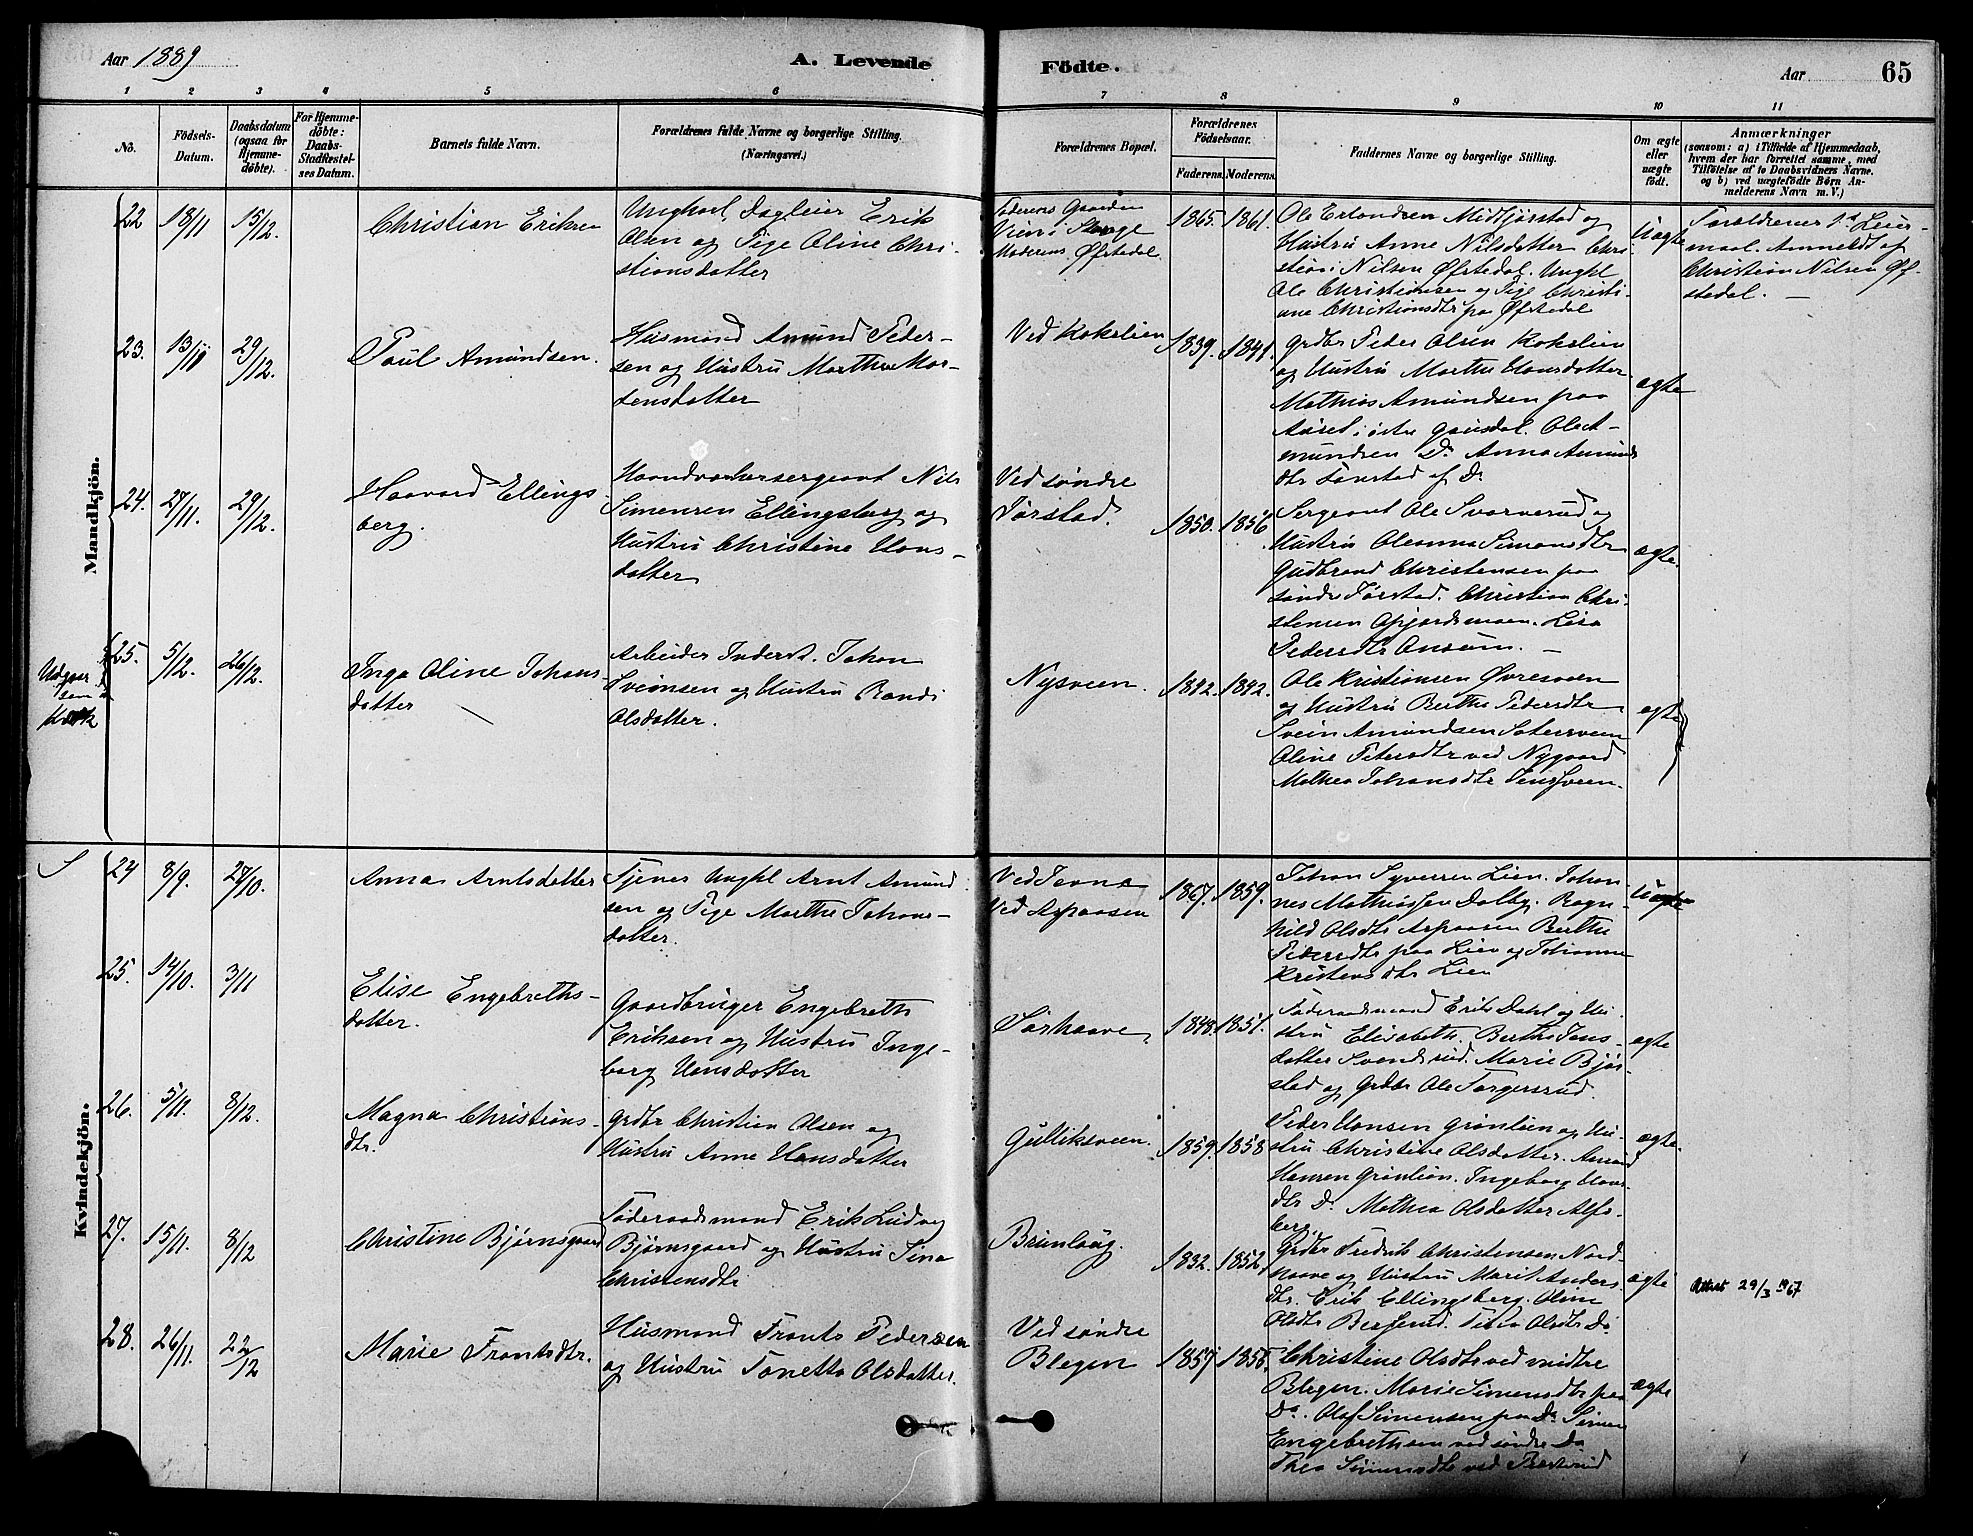 Aar 1889
A. Levende Födte.
Aar 65
1 2 3 4 5 6 7 8 9 10 11
No.
Födsels-
Datum.
Daabsdatum
(ogsaa for
Hjemme-
döbte).
For Hjemme-
döbte:
Daabs-
Stadfæstel-
ses Datum.
Barnets fulde Navn.
Forældrenes fulde Navne og borgerlige Stilling.
(Næringsvei.)
Forældrenes Bopæl.
Forældrenes
Födselsaar.
Faderens. Moderens.
Faddernes Navne og borgerlige Stilling.
Om ægte
eller
uægte
födt.
Anmærkninger
(saasom: a) i Tilfælde af Hjemmedaab,
hvem der har forrettet samme, med
Tilföielse af to Daabsvidners Navne.
og b) ved uægtefödte Börn An-
melderens Navn m. V.)
Mandkjön.
22 18/11 15/12.
Christian Eriksen
Ungkarl, Dagleier Erik
Olsen og Pige Oline Chri-
stiansdatter
Faderens Gaarden
Vien i Stange
Moderens Øfstedal
1865. 1861.
Ole Erlandsen Midtjørstad og
Hustru Anne Nilsdatter Chri-
stian Nilsen Øfstedal. Unghl
Ole Christiansen og Pige Christi-
ane Christiansdtr paa Øfstedal
Uægte
Foreldrenes 1st Leier-
maal. Anmeldt af
Christian Nilsen Øf-
stedal. —
23. 13/11 29/12.
Paul Amundsen.
Husmand Amund Peder-
sen og Hustru Marthe Mor-
tensdatter
Ved Kokslien
1839. 1841.
Grdbr Peder Olsen Kokslien
og Hustru Marthe Hansdatter
Mathias Amundsen paa
i østre Gausdal. Ole A-
mundsen Do Anna Amunds
dtr
ægte
24. 27/11. 29/12.
Haavard Ellings-
berg.
Haandværkersergeant Nils
Simensen Ellingsberg og
Hustru Christine Hans-
datter
Ved søndre
Jørstad.
1850. 1856.
Sergeant Ole Svarverud og
Hustru Oleanna Simensdtr
Gudbrand Christensen paa
søndre Jørstad. Christian Chri-
stensen
Pedersdtr —
ægte.
Udgaar
25. 5/12. 26/12.
Inga Oline Johans-
datter —
Arbeider Inderst. Johan
Sveinsen og Hustru Randi
Olsdatter.
Nysveen.
1842. 1842.
Ole Kristiansen Øvresveen
og Hustru Berthe Pedersdtr
Svein Amundsen
Oline Petersdtr ved Nygaard
Mathea Johansdtr
ægte
Kvindekjön.
24 8/9. 27/10.
Anna Arntsdatter
Tjener Unghl Arnt Amund-
sen og Pige Marthe Johans-
datter.
Ved
Ved Aspaasen
1867. 1859.
Johan Syversen Lien. Johan-
nes Mathiassen Dalby. Ragn-
hild Olsdtr Aspaasen Berthe
Pedersdtr paa Lien og Johanne
Kristensdtr Lien
Uægte
25. 14/10. 3/11
Elise Engebreths-
datter.
Gaardbruger Engebreth
Eriksen og Hustru Inge-
borg Hansdatter
Sørhaave
1848. 1851.
Føderaadsmand Erik Dahl og Hu-
stru Elisabeth. Berthe Jens-
datter Svendsrud. Marie Bjør-
stad og Grdbr Ole Torgersrud.
ægte
26. 5/11. 8/12.
Magna Christians-
dtr.
Grdbr Christian Olsen og
Hustru Anne Hansdatter
Gulliksveen.
1859. 1858
Peder Hansen Grønlien og Hu-
stru Christine Olsdatter. Amund
Hansen Grønlien. Ingeborg Hans-
dtr Do Mathea Olsdatter Alfs-
berg.
ægte.
27. 15/11. 8/12
Christine Bjørnsgaard
Føderaadsmand Erik Ludvig
Bjørnsgaard og Hustru Sina
Christensdtr
Brunlaug.
1832. 1852
Grdbr Fredrik Christensen Nord-
haave og Hustru Marit Anders-
dtr. Erik Ellingsberg. Oline
Olsdtr Olsdtr Do
ægte
Attest 29/3 1967
28. 26/11. 22/12
Marie Frantsdtr.
Husmand Frants Pedersen
og Hustru Tonetta Olsdatter.
Ved søndre
Blegen
1857. 1855.
Christine Olsdtr ved midtre
Blegen. Marie Simensdtr paa
Do. Olaf Simensen paa Do Simen
Engebrethsen ved søndre Do
Thea Simensdtr ved
ægte